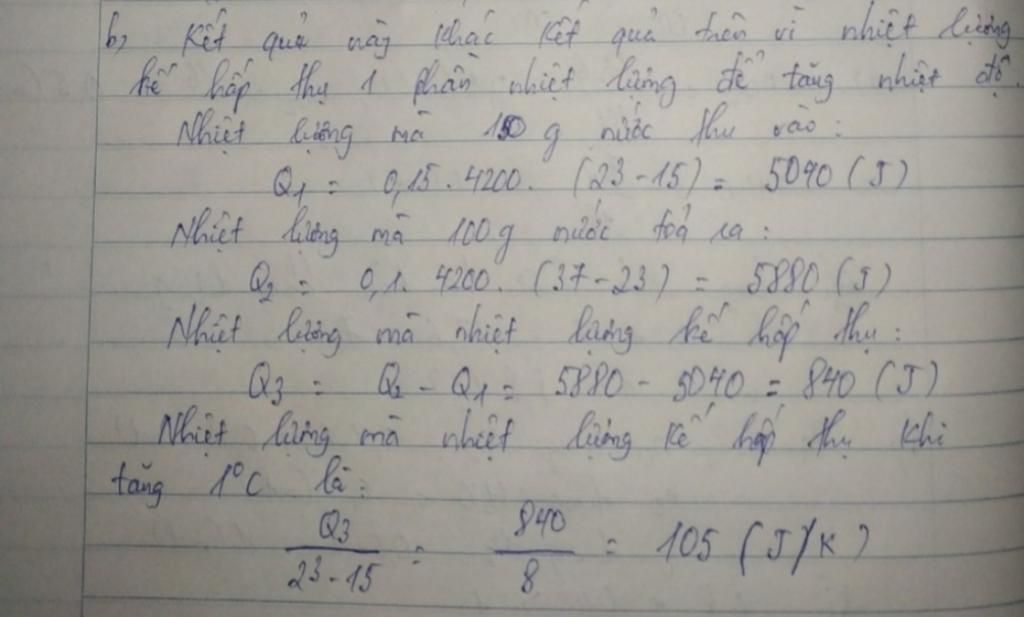 b, Kết quả này khác kết quả trên vì nhiệt lượng
kế hấp thụ 1 phần nhiệt lượng để tăng nhiệt độ.
Nhiệt lượng mà 150 g nước thu vào:
Q1 = 0,15. 4200. (23-15) = 5040 (J)
Nhiệt lượng mà 100g nước toả ra:
Q2 = 0,1. 4200. (37-23) = 5880 (J)
Nhiệt lượng mà nhiệt lượng kế hấp thụ:
Q3 = Q2 - Q1 = 5880 - 5040 = 840 (J)
Nhiệt lượng mà nhiệt lượng kế hấp thụ khi
tăng 1°C là:
Q3 / 23-15 = 840 / 8 = 105 (J/K)